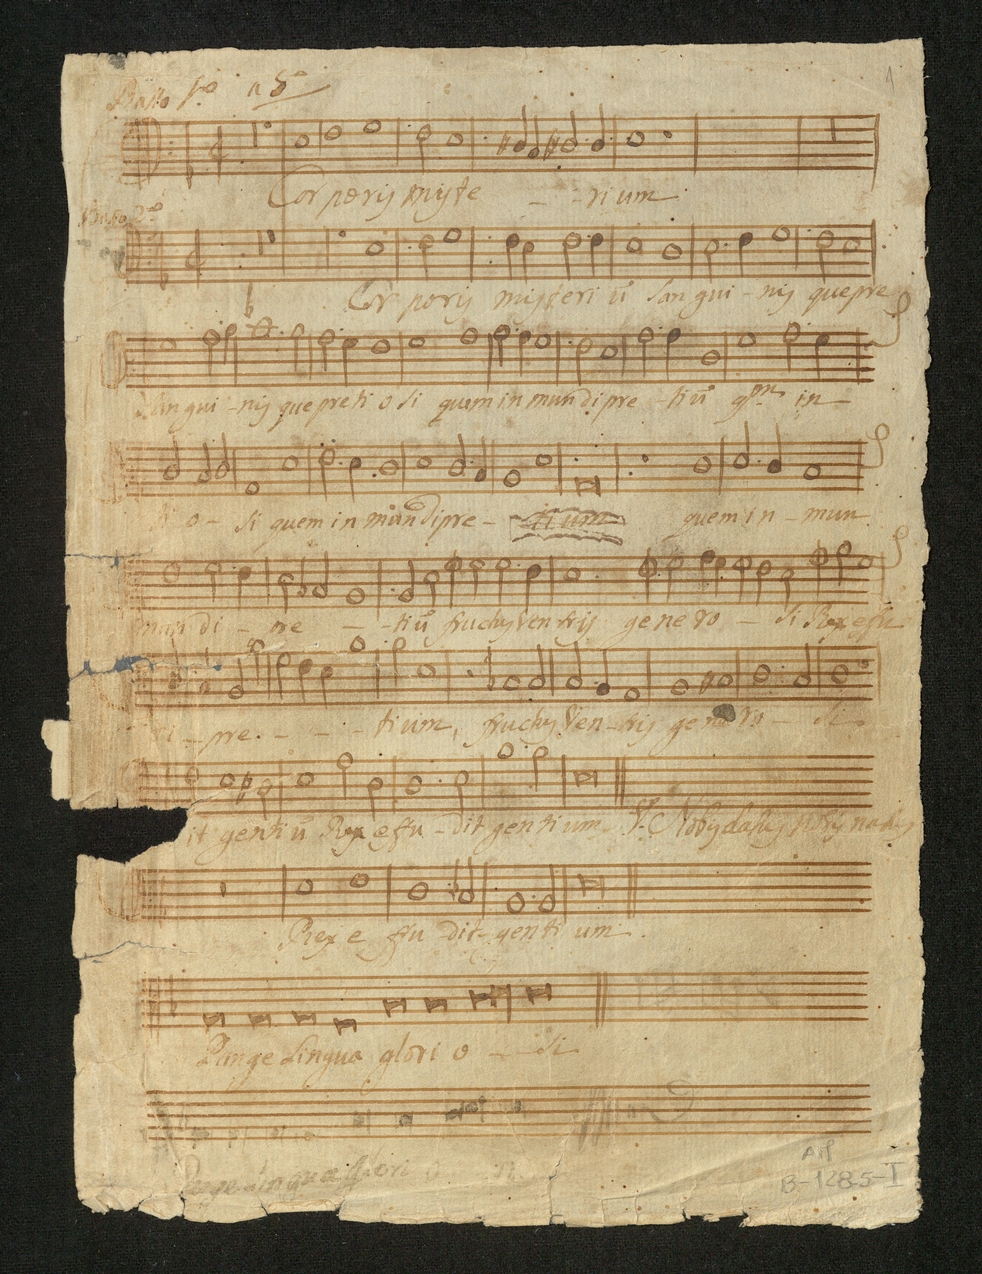 Basso 1º a 5º
1
Corporis myste - - rium
Basso 2º
Cor poris misteriũ sangui - nis quepre
sangui - nis quepretiosi quem in mundi pre - tiũ qm in
ti o - si quem in mundi pre - tium quem in - mun
mun di - pre - - tiũ fructus ventris genero - si Rex effu
di - pre - - - tium, fructus ven - tris genero - si
it gentiũ Rex effu - dit gentium. Vº. Nobis datus nobis natus
Rex e ffu dit genti um.
Pange Lingua glori o - - si
Pange Lingua glori o
AM
B-1285-I